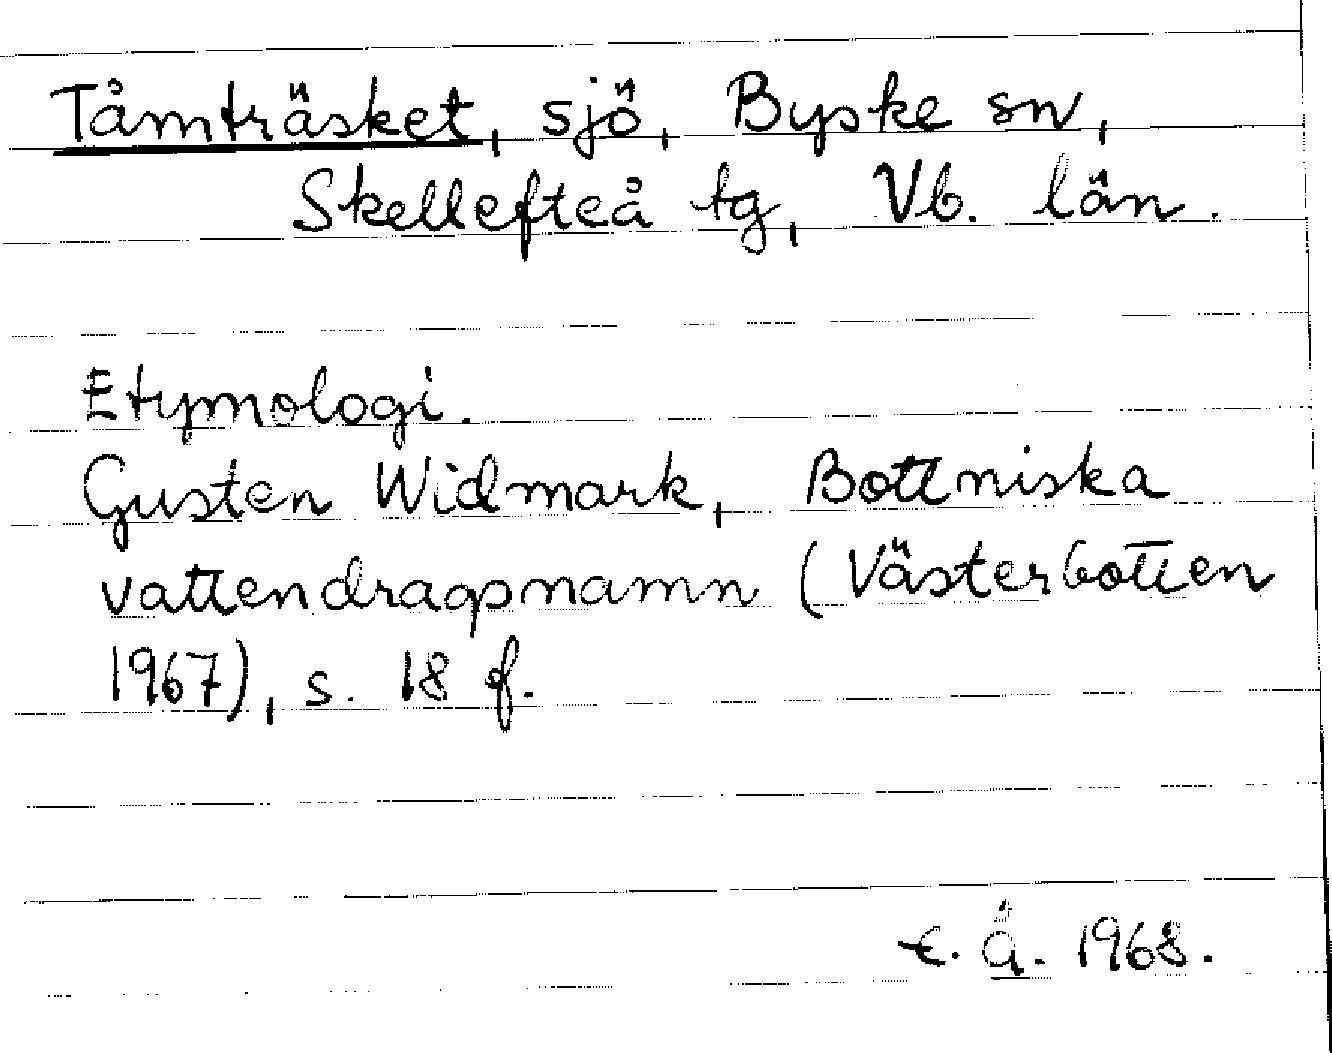 Tåmträsket, sjö, Byske sn,
Skellefteå tg, Vb. län.
Etymologi.
Gusten Widmark, Bottniska
vattendragsnamn (Västerbotten
1967), s. 18 f.
E. Å. 1968.